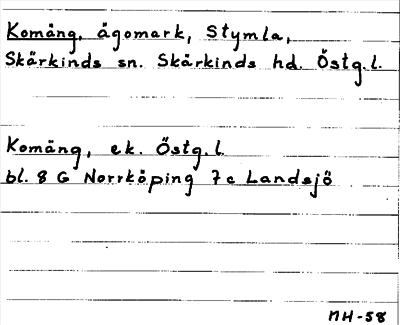 Komäng, ägomark, Stymla,
Skärkinds sn. Skärkinds hd. Östg.l.
Komäng, ek. Östg.l
bl. 8 G Norrköping 7c Landsjö
MH-58